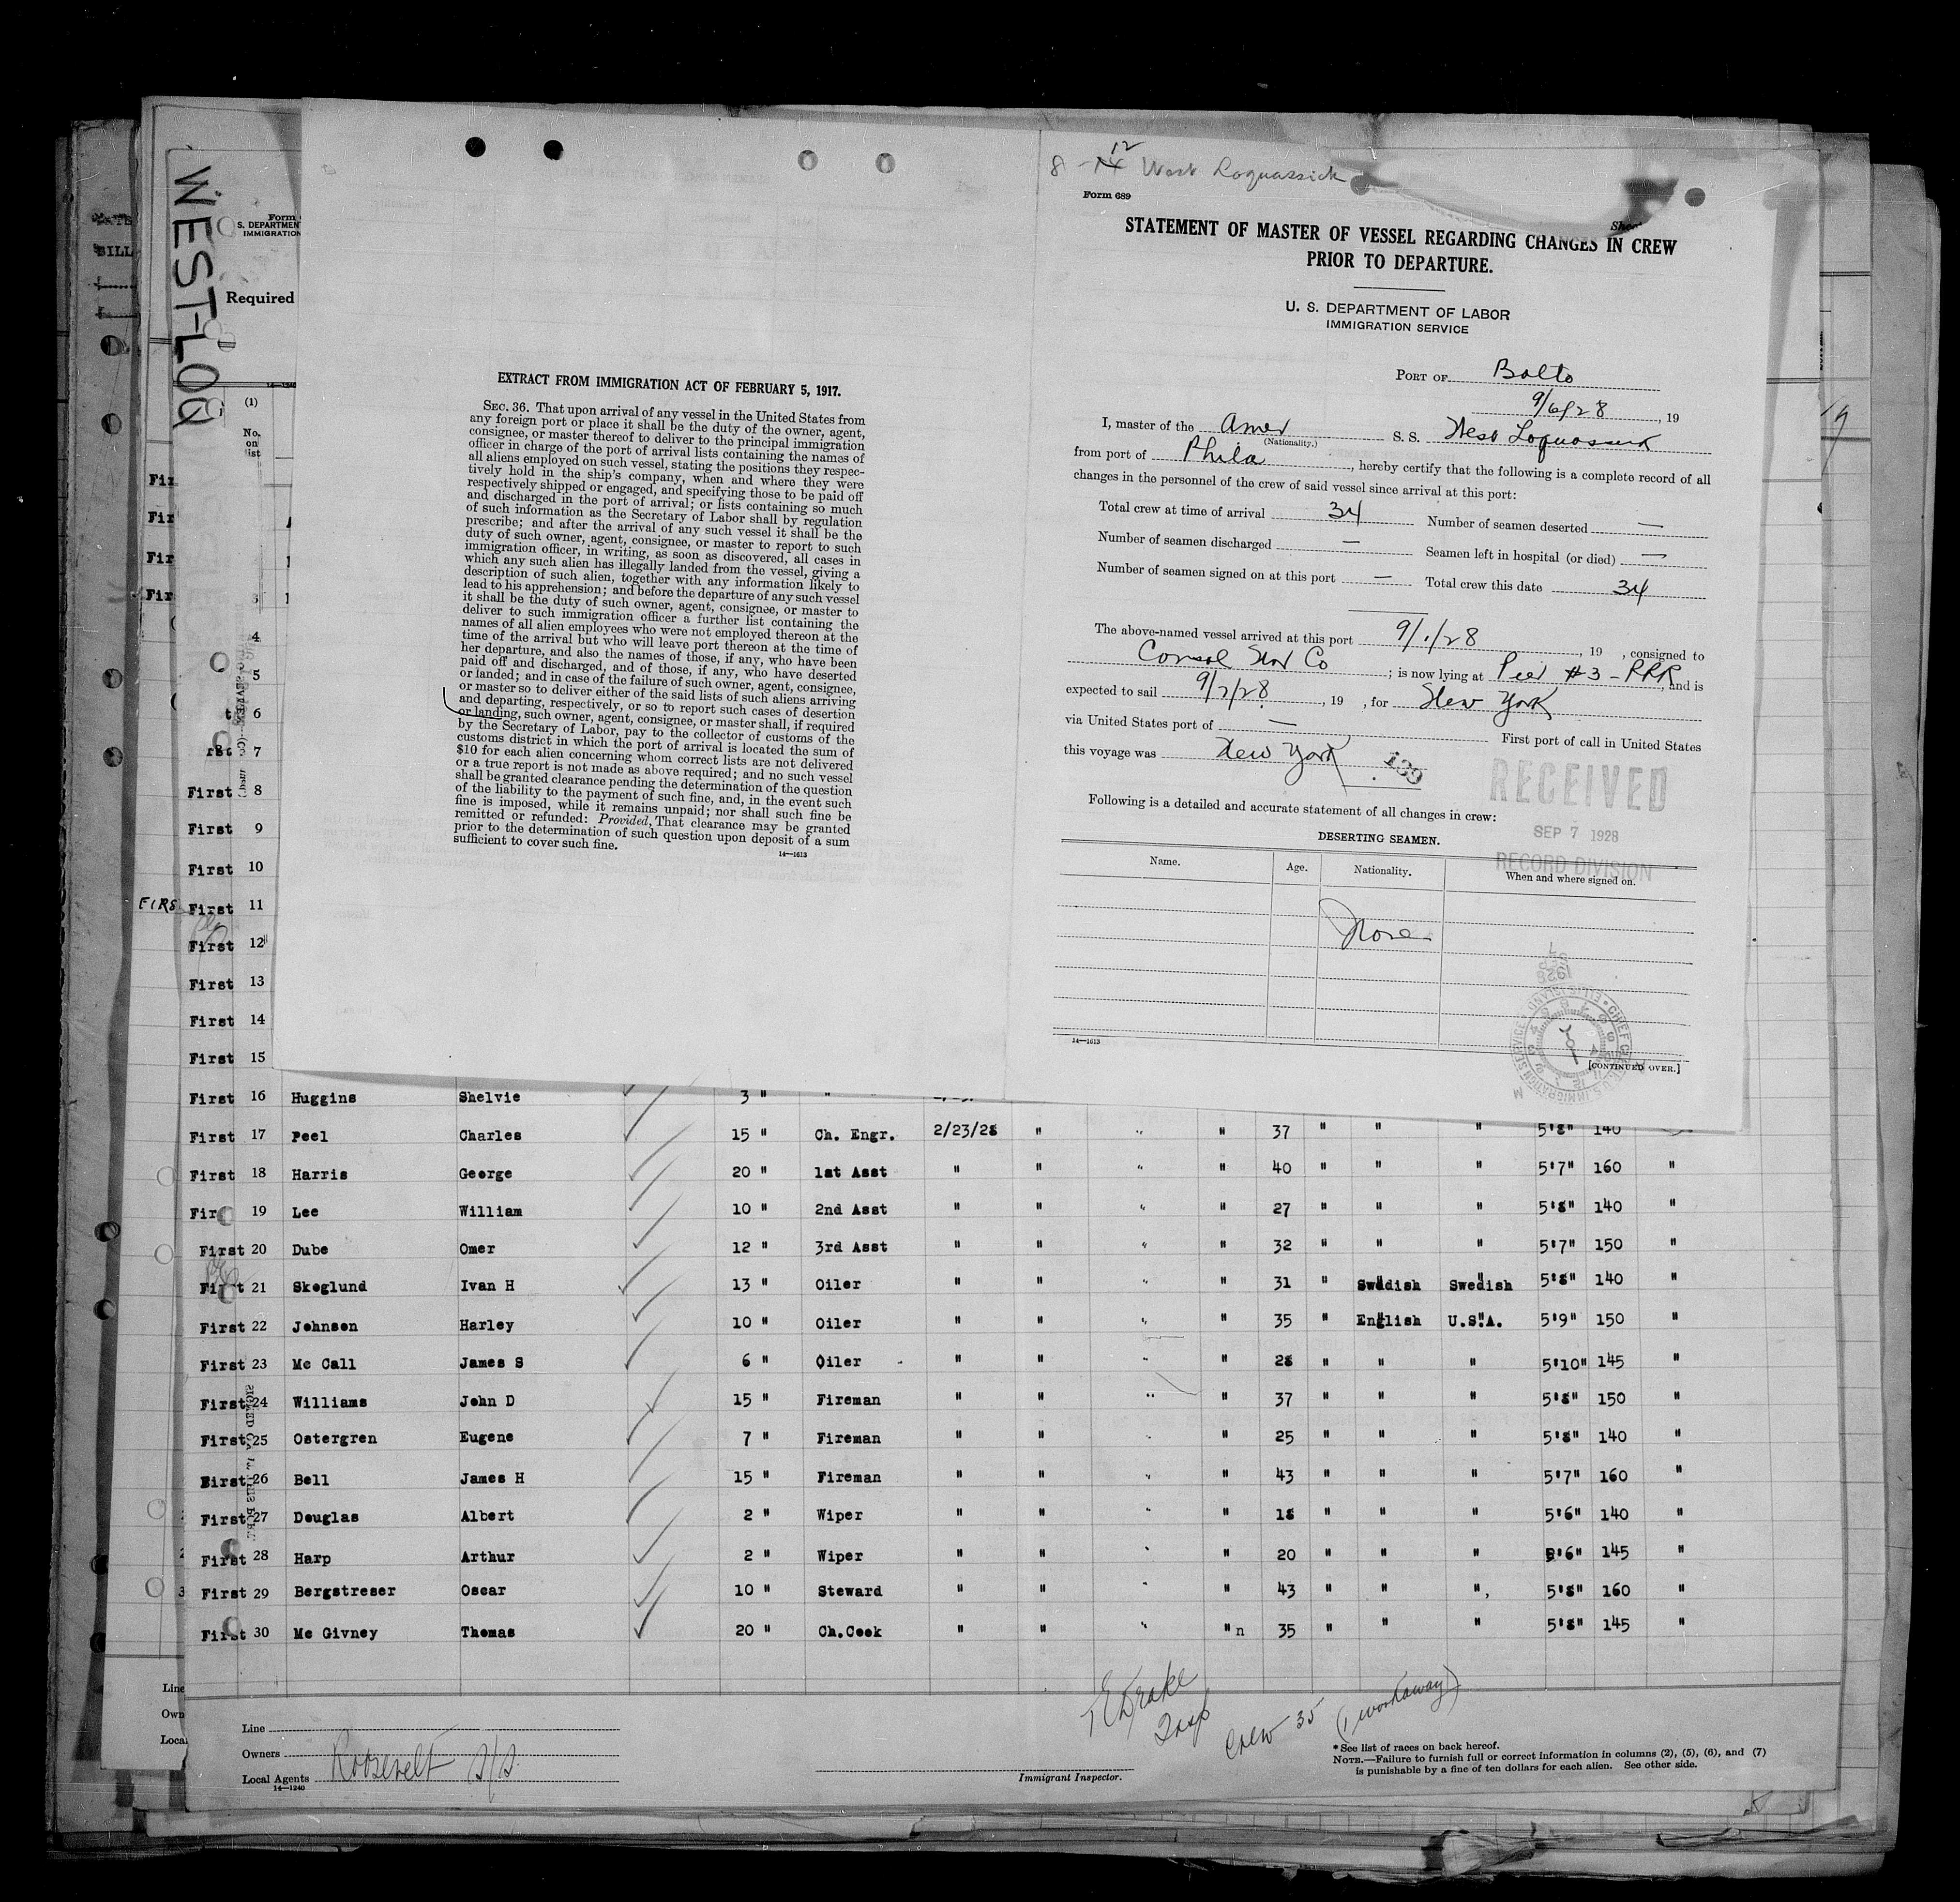 WEST-LOQ
Form
S. DEPARTMENT
IMMIGRATION
Required
14—1240
(1)
No.
on
list
EXTRACT FROM IMMIGRATION ACT OF FEBRUARY 5, 1917.
SEC. 36. That upon arrival of any vessel in the United States from
any foreign port or place it shall be the duty of the owner, agent,
consignee, or master thereof to deliver to the principal immigration
officer in charge of the port of arrival lists containing the names of
all aliens employed on such vessel, stating the positions they respec-
tively hold in the ship's company, when and where they were
respectively shipped or engaged, and specifying those to be paid off
and discharged in the port of arrival; or lists containing so much
of such information as the Secretary of Labor shall by regulation
prescribe; and after the arrival of any such vessel it shall be the
duty of such owner, agent, consignee, or master to report to such
immigration officer, in writing, as soon as discovered, all cases in
which any such alien has illegally landed from the vessel, giving a
description of such alien, together with any information likely to
lead to his apprehension; and before the departure of any such vessel
it shall be the duty of such owner, agent, consignee, or master to
deliver to such immigration officer a further list containing the
names of all alien employees who were not employed thereon at the
time of the arrival but who will leave port thereon at the time of
her departure, and also the names of those, if any, who have been
paid off and discharged, and of those, if any, who have deserted
or landed; and in case of the failure of such owner, agent, consignee,
or master so to deliver either of the said lists of such aliens arriving
and departing, respectively, or so to report such cases of desertion
or landing, such owner, agent, consignee, or master shall, if required
by the Secretary of Labor, pay to the collector of customs of the
customs district in which the port of arrival is located the sum of
$10 for each alien concerning whom correct lists are not delivered
or a true report is not made as above required; and no such vessel
shall be granted clearance pending the determination of the question
of the liability to the payment of such fine, and, in the event such
fine is imposed, while it remains unpaid; nor shall such fine be
remitted or refunded: Provided, That clearance may be granted
prior to the determination of such question upon deposit of a sum
sufficient to cover such fine.
14—1613
8 - 14 12 West Loquassick
Form 689
STATEMENT OF MASTER OF VESSEL REGARDING CHANGES IN CREW
PRIOR TO DEPARTURE.
U. S. DEPARTMENT OF LABOR
IMMIGRATION SERVICE
PORT OF Balto
9/6/28, 19
I, master of the Amer S. S. West Loquassuck
(Nationality.)
from port of Phila, hereby certify that the following is a complete record of all
changes in the personnel of the crew of said vessel since arrival at this port:
Total crew at time of arrival 34 Number of seamen deserted —
Number of seamen discharged — Seamen left in hospital (or died) —
Number of seamen signed on at this port — Total crew this date 34
The above-named vessel arrived at this port 9/1/28, 19 , consigned to
Consol Nav Co; is now lying at Pier #3 - RRR, and is
expected to sail 9/7/28, 19 , for New York
via United States port of — First port of call in United States
this voyage was New York
RECEIVED
SEP 7 1928
RECORD DIVISION
Following is a detailed and accurate statement of all changes in crew:
DESERTING SEAMEN.
Name. Age. Nationality. When and where signed on.
None
14—1613
[CONTINUED OVER.]
4
5
6
7
First 8
First 9
First 10
First 11
First 12
First 13
First 14
First 15
First 16 Huggins Shelvie 3 "
First 17 Peel Charles 15 " Ch. Engr. 2/23/28 " " " 37 " " " 5'8" 140
First 18 Harris George 20 " 1st Asst " " " " 40 " " " 5'7" 160 "
First 19 Lee William 10 " 2nd Asst " " " " 27 " " " 5'8" 140 "
First 20 Dube Omer 12 " 3rd Asst " " " " 32 " " " 5'7" 150 "
First 21 Skoglund Ivan H 13 " Oiler " " " " 31 " Swedish Swedish 5'8" 140 "
First 22 Johnson Harley 10 " Oiler " " " " 35 " English U.S.A. 5'9" 150 "
First 23 Mc Call James S 6 " Oiler " " " " 28 " " " 5'10" 145 "
First 24 Williams John D 15 " Fireman " " " " 37 " " " 5'8" 150 "
First 25 Ostergren Eugene 7 " Fireman " " " " 25 " " " 5'8" 140 "
First 26 Bell James H 15 " Fireman " " " " 43 " " " 5'7" 160 "
First 27 Douglas Albert 2 " Wiper " " " " 18 " " " 5'6" 140 "
First 28 Harp Arthur 2 " Wiper " " " " 20 " " " 5'6" 145 "
First 29 Bergstreser Oscar 10 " Steward " " " " 43 " " " 5'8" 160 "
First 30 Mc Givney Thomas 20 " Ch.Cook " " " " n 35 " " " 5'8" 145 "
Line
Owners
Local Agents Roosevelt S/S.
14—1240
Drake
Insp
Immigrant Inspector.
Crew 35 (1 workaway)
* See list of races on back hereof.
NOTE.—Failure to furnish full or correct information in columns (2), (5), (6), and (7)
is punishable by a fine of ten dollars for each alien. See other side.